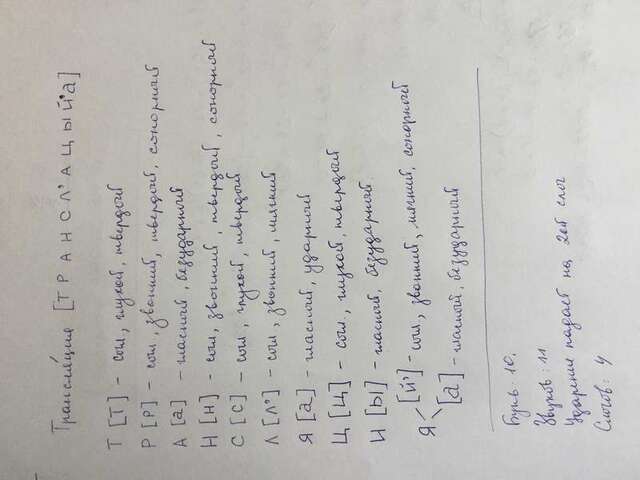 Трансляция [Т Р А Н С Л' А Ц Ы Й' А]
Т [Т] - согл, глухой, твердый
Р [Р] - согл, звонкий, твердый, сонорный
А [а] - гласный, безударный
Н [Н] - согл, звонкий, твердый, сонорный
С [С] - согл, глухой, твердый
Л [Л'] - согл, звонкий, мягкий
Я [а] - гласный, ударный
Ц [Ц] - согл, глухой, твердый
И [Ы] - гласный, безударный
Я [Й'] - согл, звонкий, мягкий, сонорный
[а] - гласный, безударный
Букв: 10.
Звуков: 11
Ударение падает на 2ой слог
Слогов: 4